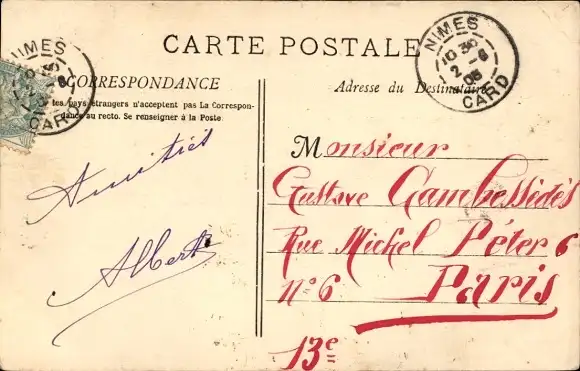 CARTE POSTALE
NIMES
10 30
2 -6
06
GARD
NIMES
GARD
CORRESPONDANCE
tes pays étrangers n'acceptent pas La Correspon-
dance au recto. Se renseigner à la Poste
Amitiés
Albert
Adresse du Destinataire
Monsieur
Gustave Cambessidès
Rue Michel Péter 6
N° 6 Paris
13e